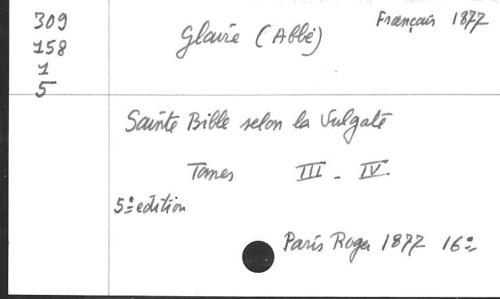 309
158
1
5
Français 1877
Glaire (Abbé)
Sainte Bible selon la Vulgate
Tomes III - IV.
5e edition
Paris Roger 1877 16º